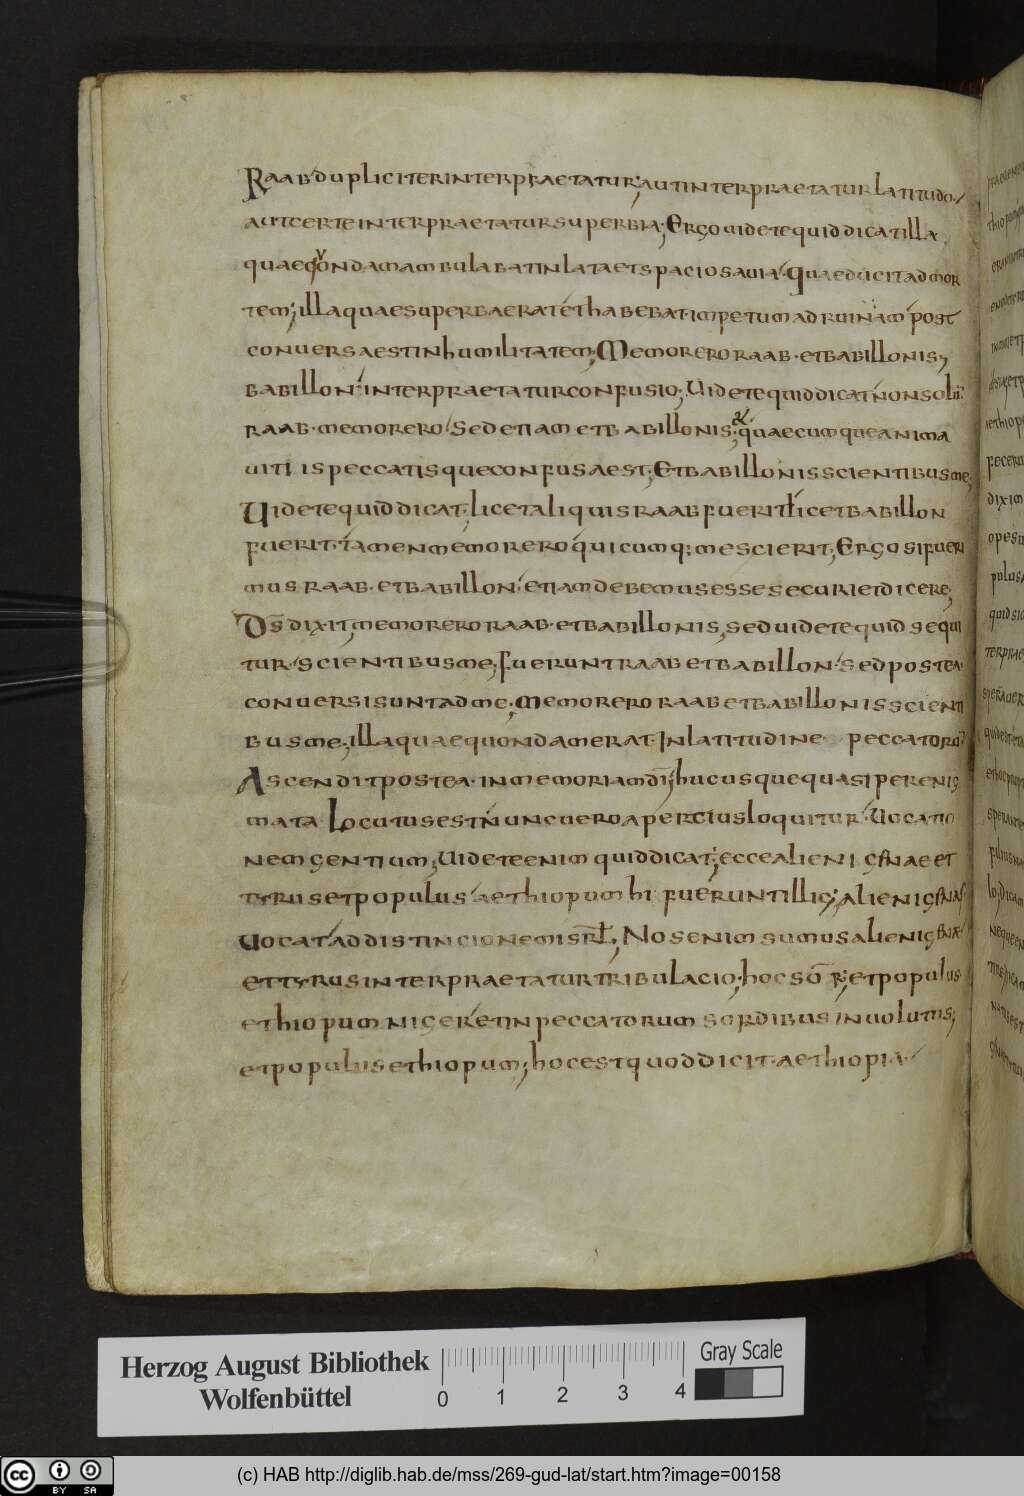 Raab dupliciter interpraetatur; aut interpraetatur latitudo·
aut certe interpraetatur superbia; Ergo uidete quid dicat illa
quae qondam ambulabat in lata et spaciosa uia· quae ducit ad mor
tem; illa quae superba erat et habebat impetum ad ruinam post
conuersa est in humilitatem; Memorero raab· et babillonis,
babillon interpraetatur confusio; Uidete quid dicat non soli
raab· memorero· Sed etiam et babillonis; quaecumque anima
uitiis peccatisque confusa est; Et babillonis scientibus me;
Uidete quid dicat, licet aliquis raab fuerit licet babillon
fuerit· tamen memorero quicumq; me scierit; Ergo si fueri
mus raab· et babillon etiam debemus esse securi et dicere;
Ds̄ dixit; memorero raab· et babillonis, sed uidete quid sequi
tur· scientibus me; fuerunt raab et babillon· sed postea·
conuersi sunt ad me; Memorero raab et babillonis scienti
bus me; illa quae quondam erat· In latitudine peccatorū
Ascendit postea· in memoriam dī; hucusque quasi per enig
mata Locutus est· nunc uero apercius loquitur· Uocatio
nem gentium; Uidete enim quid dicat; ecce alienigenae et
tyrus et populus aethiopum hi fuerunt illic; alienigenas
uocat· ad distincionem isrł, Nos enim sumus alienigenae
et tyrus interpraetatur tribulacio; hoc sōr; et populus
ethiopum niger et in peccatorum sordibus inuolutus;
et populus ethiopum; hoc est quod dicit· aethiopia·
Herzog August Bibliothek
Wolfenbüttel
0 1 2 3 4
Gray Scale
cc BY SA
(c) HAB http://diglib.hab.de/mss/269-gud-lat/start.htm?image=00158